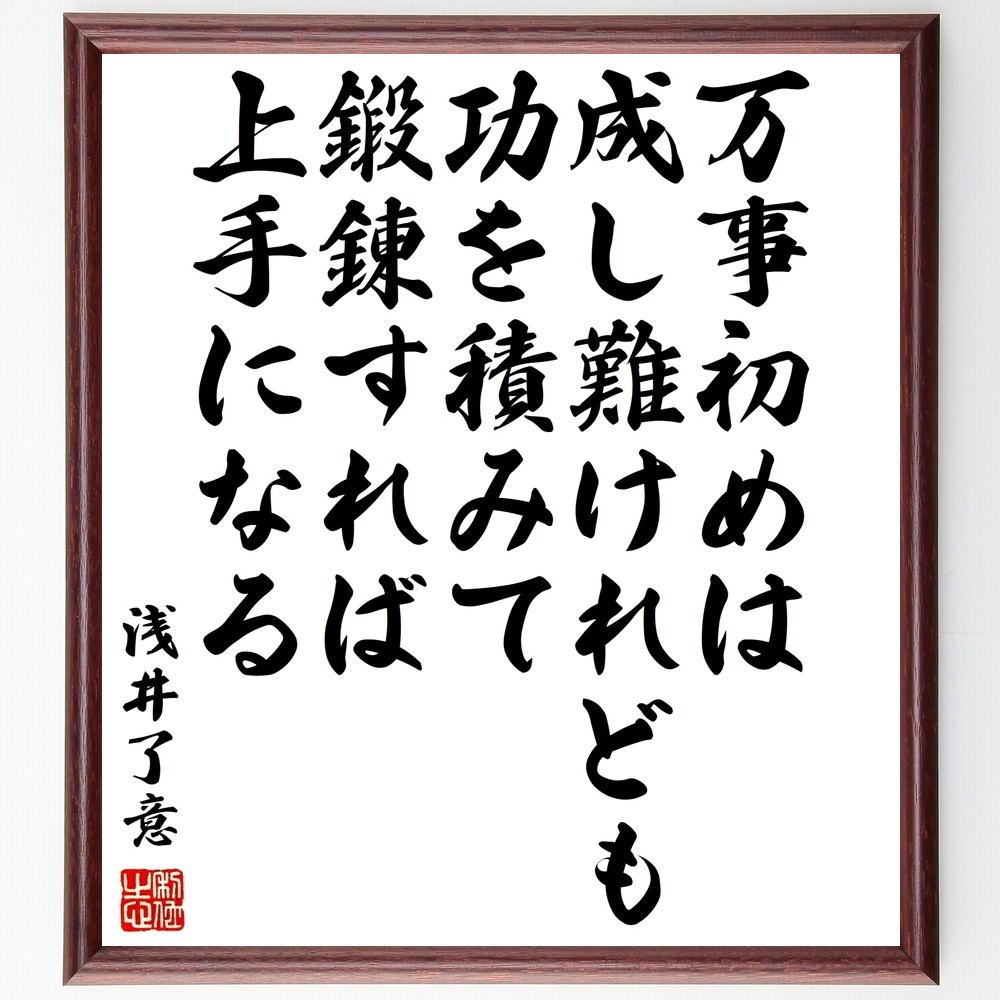 万事初めは
成し難けれども
功を積みて
鍛錬すれば
上手になる
浅井了意